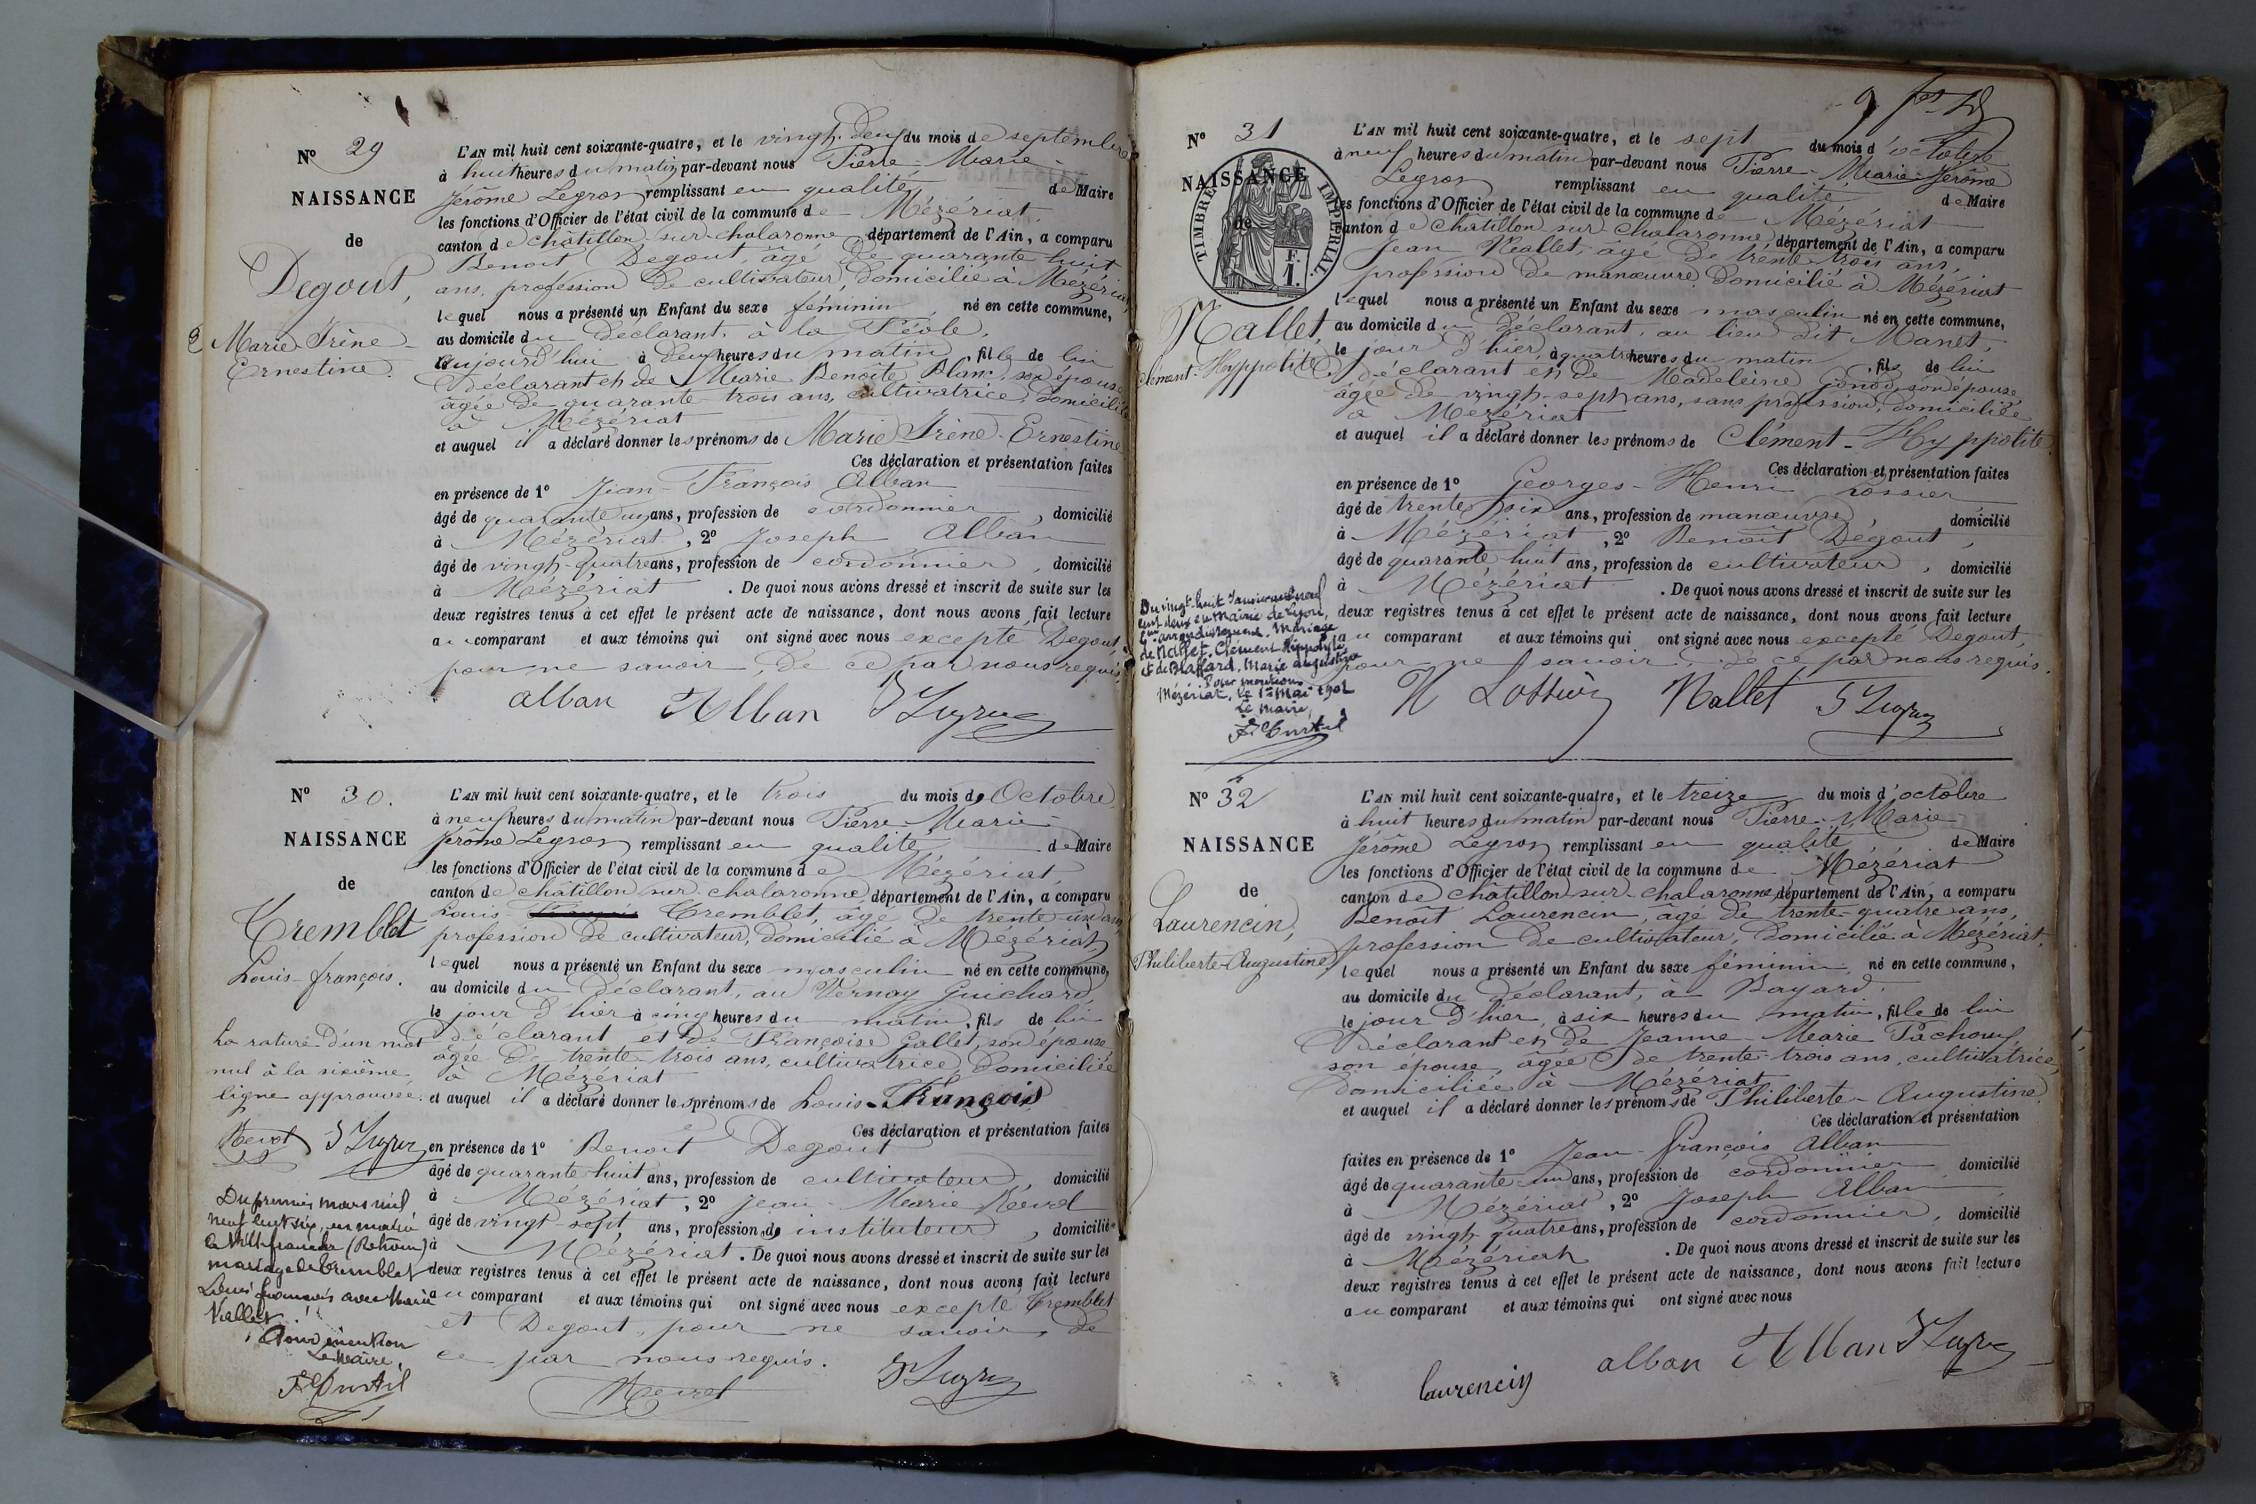 N° 29
NAISSANCE
de
Degout,
Marie Irène
Ernestine.
L'AN mil huit cent soixante-quatre, et le vingt-deux du mois de septembre
à huit heures du matin par-devant nous Pierre-Marie
Jérôme Legros remplissant en qualité de Maire
les fonctions d'Officier de l'état civil de la commune de Mézériat,
canton de châtillon-sur-chalaronne département de l'Ain, a comparu
Benoit Degout, âgé de quarante huit
ans, profession de cultivateur, domicilié à Mézériat,
lequel nous a présenté un Enfant du sexe féminin né en cette commune,
au domicile du déclarant, à la
aujourd'hui à deux heures du matin, fille de lui
déclarant et de Marie Benoîte Blanc, son épouse,
âgée de quarante-trois ans, cultivatrice, domiciliée
à Mézériat
et auquel il a déclaré donner les prénoms de Marie Irène-Ernestine
Ces déclaration et présentation faites
en présence de 1° Jean-François Alban
âgé de quarante un ans, profession de cordonnier, domicilié
à Mézériat, 2° Joseph Alban
âgé de vingt-quatre ans, profession de cordonnier, domicilié
à Mézériat. De quoi nous avons dressé et inscrit de suite sur les
deux registres tenus à cet effet le présent acte de naissance, dont nous avons fait lecture
au comparant et aux témoins qui ont signé avec nous excepté Degout,
pour ne savoir, de ce par nous requis.
alban Alban
N° 30.
NAISSANCE
de
Tremblet
Louis-françois.
La rature d'un mot
nul à la sixième
ligne approuvée.
Du premier mars mil
neuf cent six, en mairie
de Villefranche (Rhône)
mariage de Tremblet
Louis françois avec Marie
Vallet
Pour mention
Le Maire,
L'AN mil huit cent soixante-quatre, et le trois du mois de Octobre
à neuf heures du matin par-devant nous Pierre-Marie
Jérôme Legros remplissant en qualité de Maire
les fonctions d'Officier de l'état civil de la commune de Mézériat,
canton de châtillon-sur-chalaronne département de l'Ain, a comparu
Louis Tremblet, âgé de trente-un ans,
profession de cultivateur, domicilié à Mézériat
lequel nous a présenté un Enfant du sexe masculin né en cette commune,
au domicile du déclarant, au Vernay Guichard,
le jour d'hier à cinq heures du matin, fils de lui
déclarant et de Françoise Gallet, son épouse,
âgée de trente-trois ans, cultivatrice, domiciliée
à Mézériat
et auquel il a déclaré donner les prénoms de Louis-François
Ces déclaration et présentation faites
en présence de 1° Benoit Degout
âgé de quarante-huit ans, profession de cultivateur, domicilié
à Mézériat, 2° Jean-Marie Revol
âgé de vingt-sept ans, profession de instituteur, domicilié
à Mézériat. De quoi nous avons dressé et inscrit de suite sur les
deux registres tenus à cet effet le présent acte de naissance, dont nous avons fait lecture
au comparant et aux témoins qui ont signé avec nous excepté Tremblet
et Degout, pour ne savoir, de
ce par nous requis.
N° 31
NAISSANCE
de
TIMBRE IMPÉRIAL.
F.
1.
Nallet,
Clément-Hyppolite.
Du vingt-huit Janvier mil neuf
cent deux en Mairie de Lyon,
arrondissement. Mariage
de Nallet, Clément Hippolyte
et de Blaffard, Marie Augustine
Pour mention
Mézériat, le 1er Mai 1902
Le Maire,
L'AN mil huit cent soixante-quatre, et le sept du mois d'octobre
à neuf heures du matin par-devant nous Pierre-Marie-Jérôme
Legros remplissant en qualité de Maire
les fonctions d'Officier de l'état civil de la commune de Mézériat
canton de Châtillon sur chalaronne département de l'Ain, a comparu
Jean Nallet, âgé de trente trois ans,
profession de manœuvre, domicilié à Mézériat
lequel nous a présenté un Enfant du sexe masculin né en cette commune,
au domicile du déclarant, au lieu dit Manet,
le jour d'hier, à quatre heures du matin, fils de lui
déclarant et de Madeleine Gonod, son épouse,
âgée de vingt-sept ans, sans profession, domiciliée
à Mézériat
et auquel il a déclaré donner les prénoms de Clément-Hyppolite.
Ces déclaration et présentation faites
en présence de 1° Georges-Henri Lossier
âgé de trente six ans, profession de manœuvre, domicilié
à Mézériat, 2° Benoît Dégout,
âgé de quarante huit ans, profession de cultivateur, domicilié
à Mézériat. De quoi nous avons dressé et inscrit de suite sur les
deux registres tenus à cet effet le présent acte de naissance, dont nous avons fait lecture
au comparant et aux témoins qui ont signé avec nous excepté Degout,
pour ne savoir, de ce par nous requis.
Nallet
N° 32
NAISSANCE
de
Laurencin,
Philiberte-Augustine.
L'AN mil huit cent soixante-quatre, et le treize du mois d'octobre
à huit heures du matin par-devant nous Pierre-Marie
Jérôme Legros remplissant en qualité de Maire
les fonctions d'Officier de l'état civil de la commune de Mézériat
canton de châtillon-sur-chalaronne, département de l'Ain, a comparu
Benoît Laurencin, âgé de trente-quatre ans,
profession de cultivateur, domicilié à Mézériat,
lequel nous a présenté un Enfant du sexe féminin, né en cette commune,
au domicile du déclarant, à Bayard.
le jour d'hier, à six heures du matin, fille de lui
déclarant et de Jeanne-Marie Pachoux,
son épouse, âgée de trente-trois ans, cultivatrice,
domiciliée à Mézériat
et auquel il a déclaré donner les prénoms de Philiberte-Augustine.
Ces déclaration et présentation
faites en présence de 1° Jean-François Alban
âgé de quarante-un ans, profession de cordonnier domicilié
à Mézériat, 2° Joseph Alban
âgé de vingt quatre ans, profession de cordonnier, domicilié
à Mézériat. De quoi nous avons dressé et inscrit de suite sur les
deux registres tenus à cet effet le présent acte de naissance, dont nous avons fait lecture
au comparant et aux témoins qui ont signé avec nous
alban Alban
laurencin